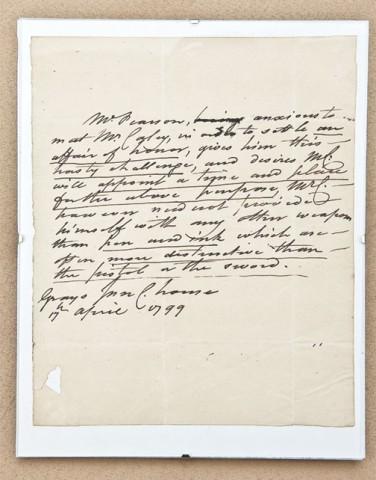 Mr. Pearson, being anxious to
meet Mr. in order to settle an
affair of honor, gives him this
hasty challenge, and desires Mr.
will appoint a time and place
for the above purpose, Mr.
however need not provide
himself with any other weapon
than pen and ink which are
often more distructive than
the pistol or the sword.
Grays Inn C. house
17th April 1799